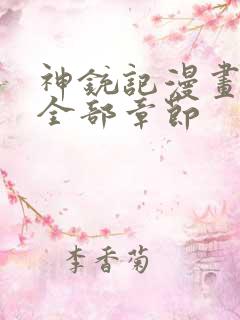 神銃記漫畫
全部章節
李香菊